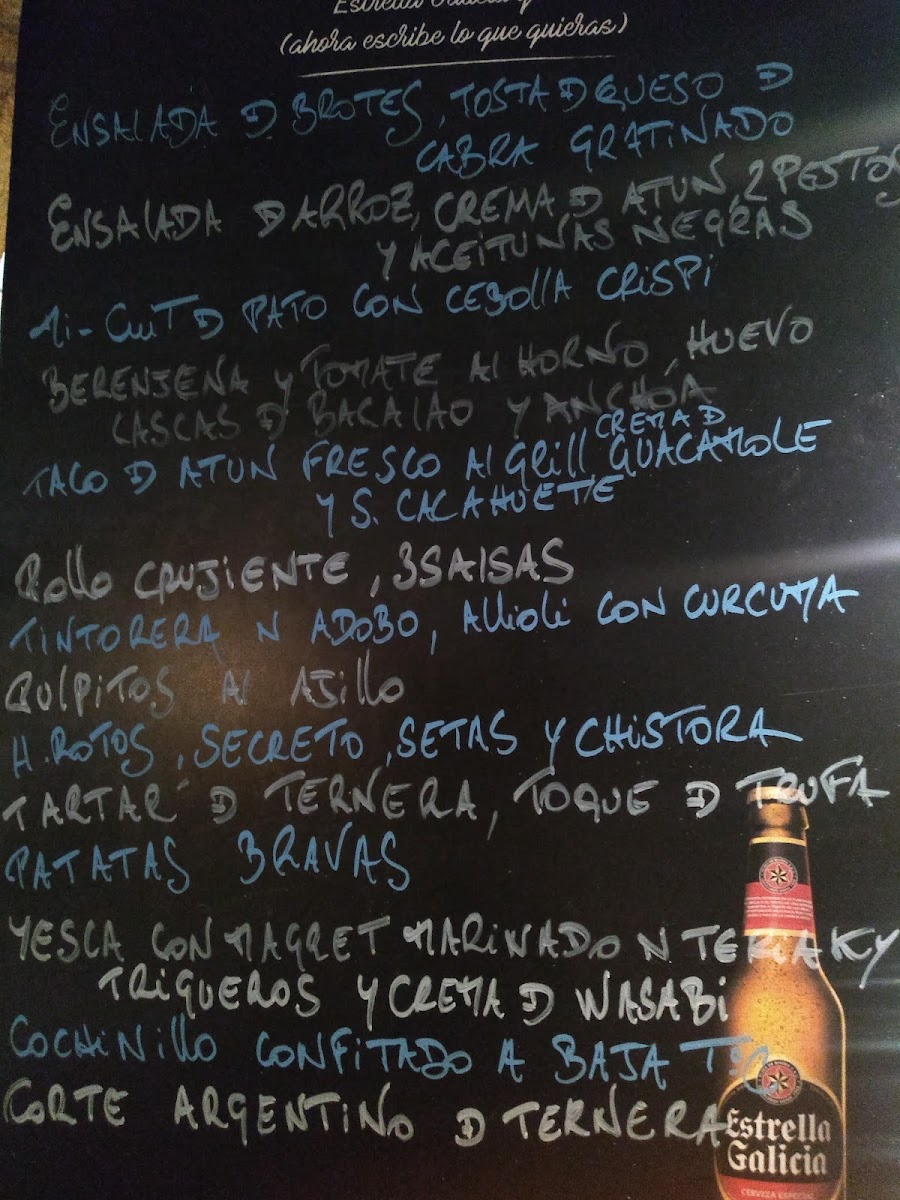 Estrella Galicia y
(ahora escribe lo que quieras)
ENSALADA D BROTES, TOSTA D QUESO D
CABRA GRATINADO
ENSALADA D ARROZ, CREMA D ATUN, 2 PESTOS
Y ACEITUNAS NEGRAS
MI-CUIT D PATO CON CEBOLLA CRISPI
BERENJENA Y TOMATE AL HORNO, HUEVO
CASCAS D BACALAO Y ANCHOA
TACO D ATUN FRESCO AL GRILL CREMA D GUACAMOLE
Y S. CACAHUETE
Rollo CRUJIENTE, 3 SALSAS
TINTORERA N ADOBO, AllioLi CON CURCUMA
PULPITOS Al AJILLO
H. ROTOS, SECRETO, SETAS Y CHISTORRA
TARTAR D TERNERA, TOQUE D TRUFA
PATATAS BRAVAS
YESCA CON MAGRET MARINADO N TERIAKY
TRIGUEROS Y CREMA D WASABI
COCHINILLO CONFITADO A BAJA Tª
CORTE ARGENTINO D TERNERA
Estrella
Galicia
CERVEZA ESPECIAL